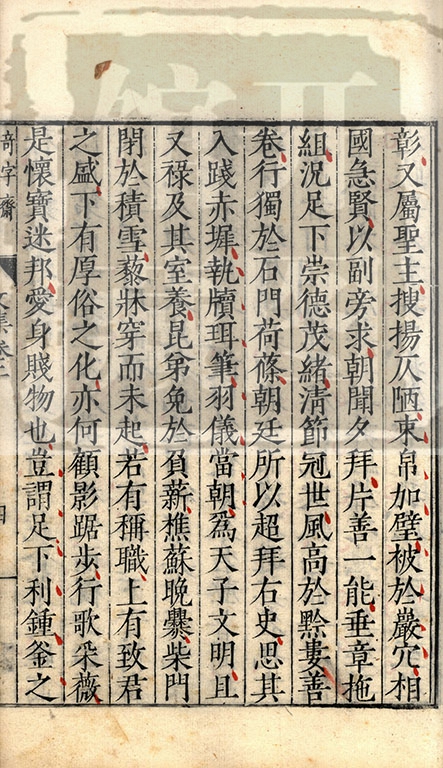 彰又屬聖主搜揚仄陋束帛加璧被於巖穴相
國急賢以副旁求朝聞夕拜片善一能垂章拖
組況足下崇德茂緒清節冠世風高於黔婁善
卷行獨於石門荷蓧朝廷所以超拜右史思其
入踐赤墀執牘珥筆羽儀當朝爲天子文明且
又祿及其室養昆弟免於負薪樵蘇晚爨柴門
閉於積雪藜牀穿而未起若有稱職上有致君
之盛下有厚俗之化亦何顧影踞步行歌采薇
是懷寶迷邦愛身賤物也豈謂足下利鍾釜之
奇字齋
文集卷二
四